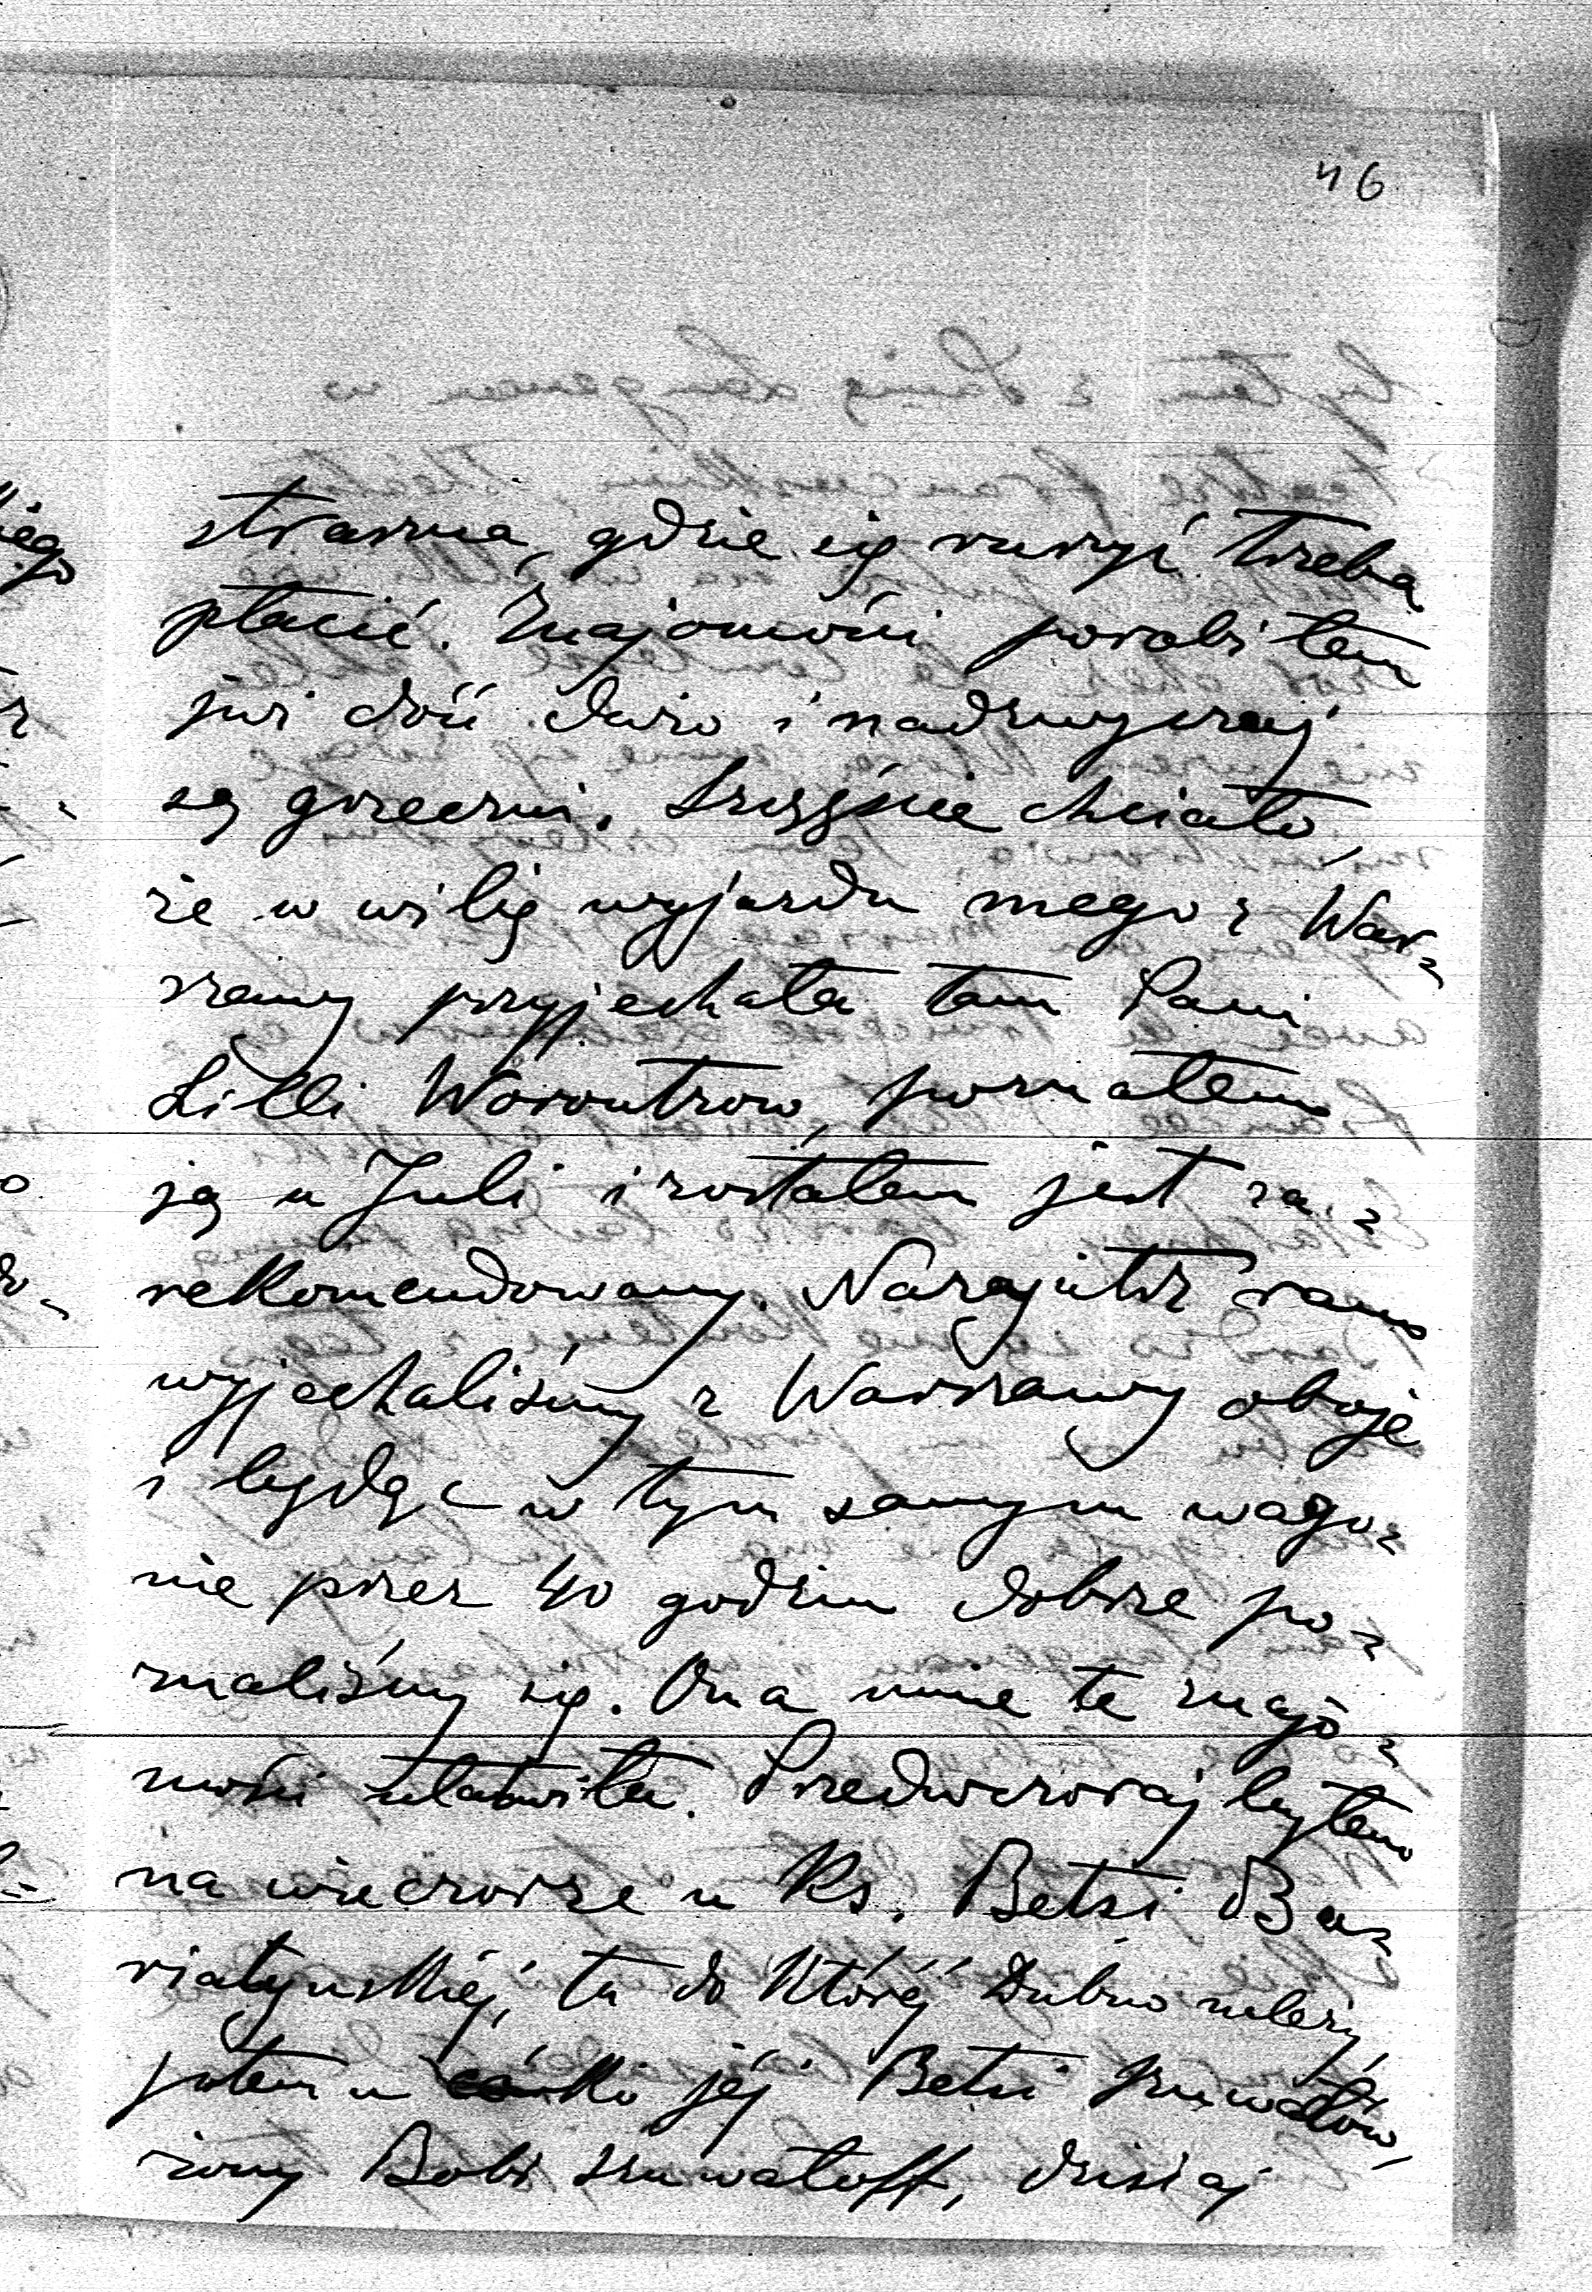 46
straszna, gdzie się ruszyć trzeba
płacić. Znajomości porobiłem
już dość dużo i nadzwyczaj
są grzeczni. Szczęście chciało,
że w wilię wyjazdu mego z War-
szawy przyjechała tam Pani
Lilli Worontzow, poznałem
ją u Juli i zostałem jest za-
rekomendowany. Nazajutrz rano
wyjechaliśmy z Warszawy oboje
i będąc w tym samym wago-
nie przez 40 godzin dobrze po-
znaliśmy się. Ona mnie te znajo-
mości ułatwiła. Przedwczoraj byłem
na wieczorze u Ks. Betsi Ba-
riatyńskiéj, ta do któréj Dubno należy,
potem u córki jéj Betsi Szuwałów,
żony Bobi Szuwaloff, dzisiaj